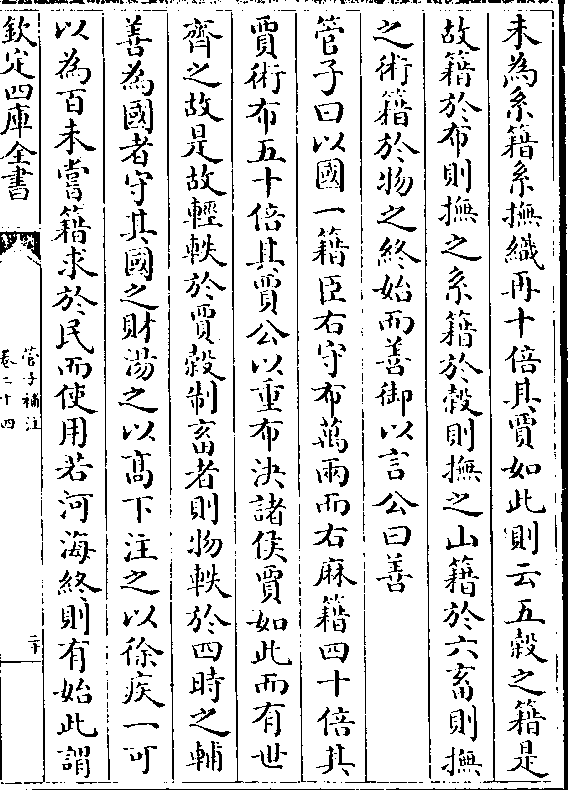 未為糸籍糸撫織再十倍其賈如此則云五穀之籍是
故籍於布則撫之糸籍於穀則撫之山籍於六畜則撫
之術籍於物之終始而善御以言公曰善
管子曰以國一籍臣右守布萬兩而右麻籍四十倍其
賈術布五十倍其賈公以重布決諸侯賈如此而有廿
齊之故是故輕軼於賈穀制畜者則物軼於四時之輔
善為國者守其國之財湯之以髙下注之以徐疾一可
以為百未嘗籍求於民而使用若河海終則有始此謂
欽定四庫全書
管子補注
卷二十四
二十